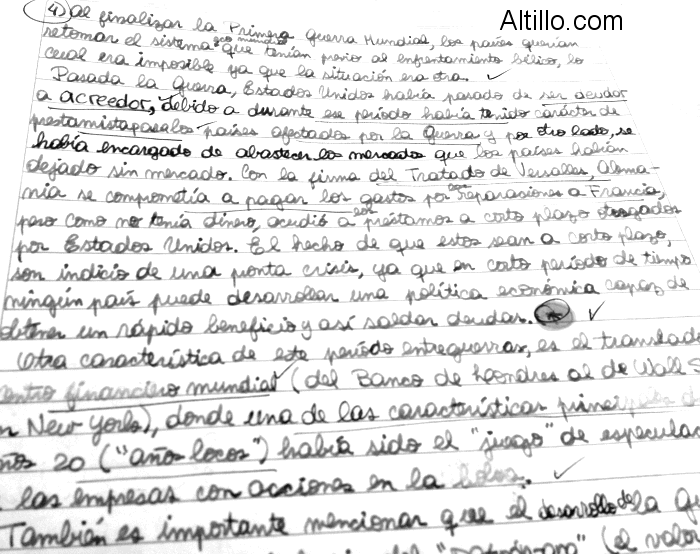 Altillo.com
4) Al finalizar la Primera Guerra Mundial, los países querían
retomar el sistema eco mundial que tenían previo al enfrentamiento bélico, lo
cual era imposible ya que la situación era otra.
Pasada la Guerra, Estados Unidos había pasado de ser deudor
a acreedor, debido a durante ese período había tenido carácter de
prestamista para los países afectados por la Guerra y por otro lado, se
había encargado de abastecer los mercados que los países habían
dejado sin mercado. Con la firma del Tratado de Versalles, Alema-
nia se comprometía a pagar los gastos por reparaciones a Francia,
pero como no tenía dinero, acudió a préstamos a corto plazo otorgados
por Estados Unidos. El hecho de que estos sean a corto plazo,
son indicio de una pronta crisis, ya que en corto período de tiempo
ningún país puede desarrollar una política económica capaz de
obtener un rápido beneficio y así saldar deudas.
Otra característica de este período entreguerras, es el traslado
centro financiero mundial (del Banco de Londres al de Wall S
n New York), donde una de las características principales d
ños 20 ("años locos") había sido el "juego" de especulac
las empresas con acciones en la bolsa.
También es importante mencionar que el desarrollo de la Gu
(el valo